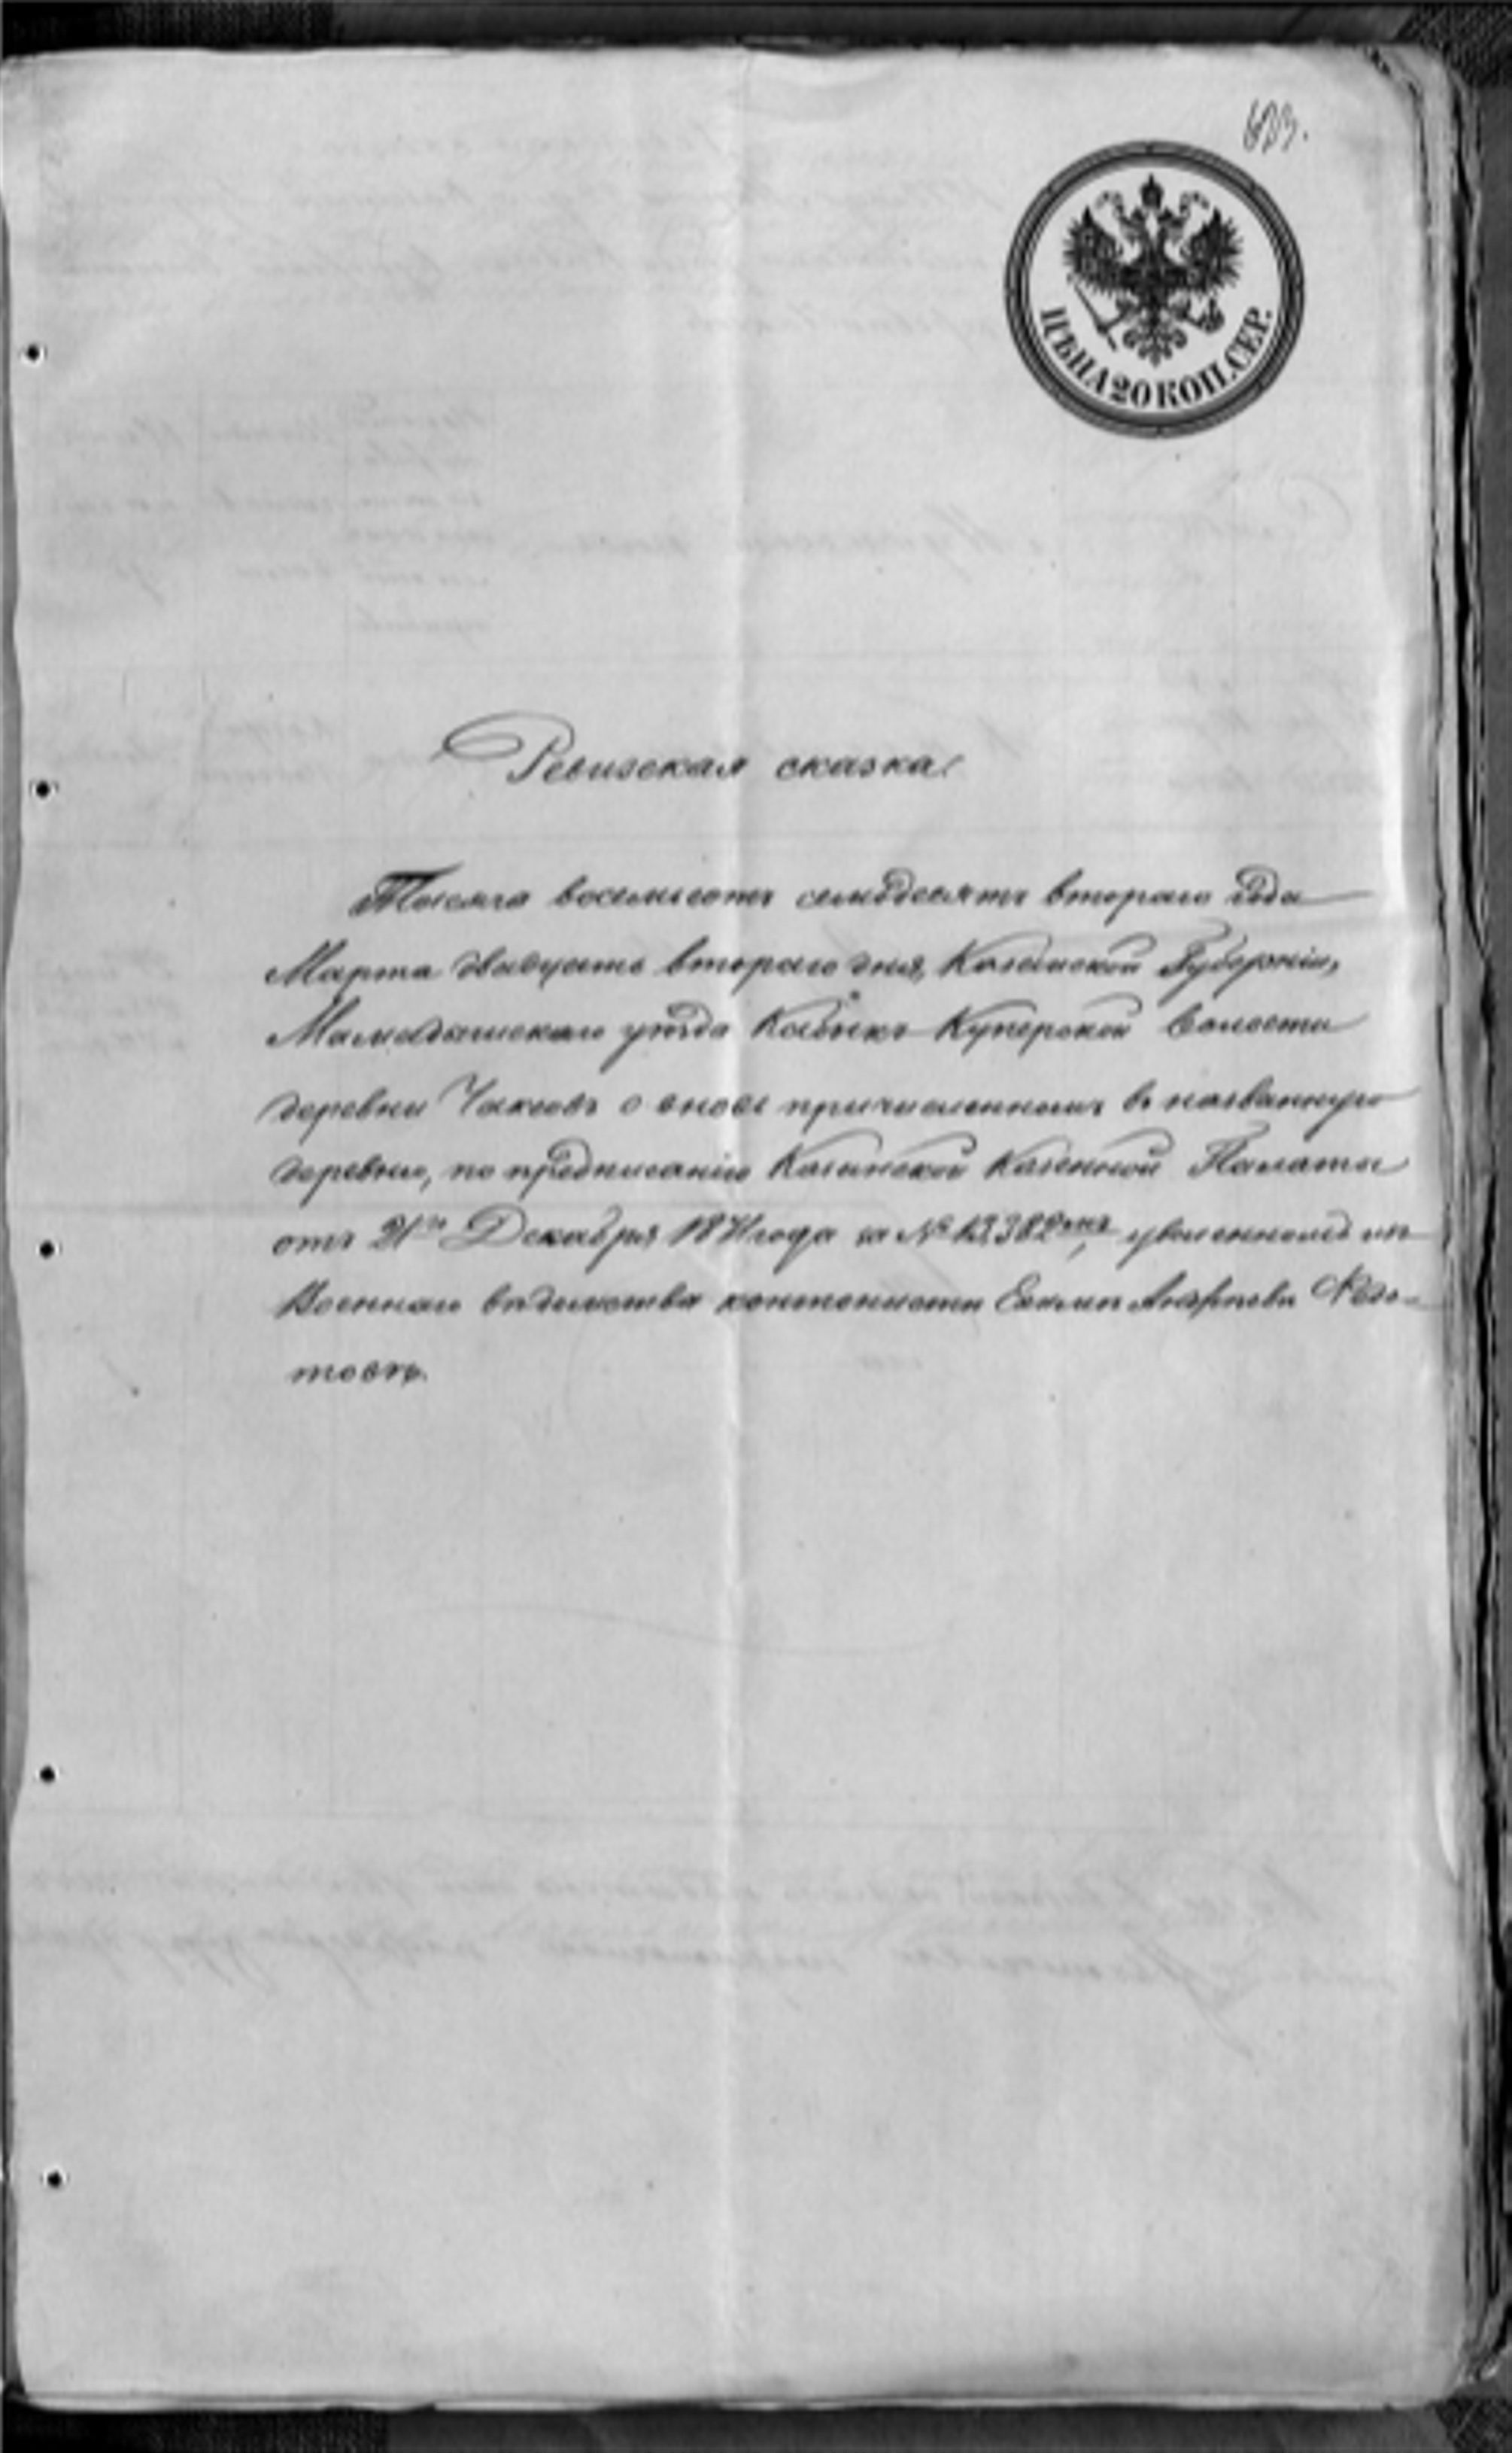 603.
ЦѢНА 20 КОП. СЕР.
Ревизская сказка.
Тысяча восемьсотъ семьдесятъ втораго года
Марта двадцать втораго дня, Казанской Губерніи,
Мамадышскаго уѣзда Кабыкъ-Куперской волости
деревни о вновь причисленномъ въ названную
деревню, по предписанію Казанской Казенной Палаты
отъ 21го Декабря 1871 года за № 13382мъ, уволенномъ изъ
Военнаго вѣдомства кантонистѣ Андреевѣ Ѳедо-
товѣ.